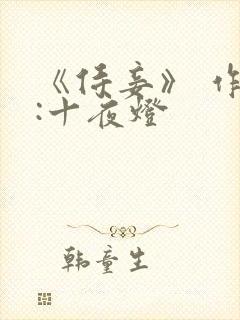 《侍妾》 作
:十夜燈
韩童生